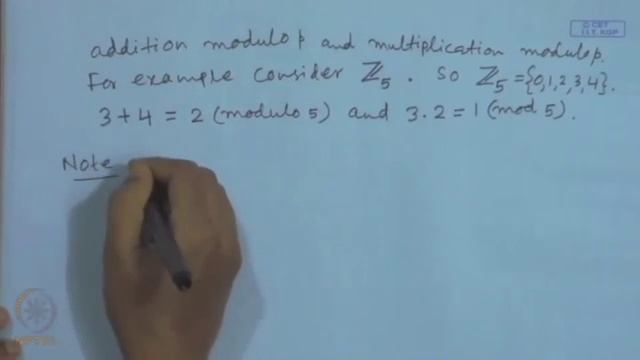 © CET
I.I.T. KGP
addition modulo p and multiplication modulo p.
For example consider ℤ₅. So ℤ₅ = {0,1,2,3,4}.
3 + 4 = 2 (modulo 5) and 3 . 2 = 1 (mod 5).
Note
NPTEL